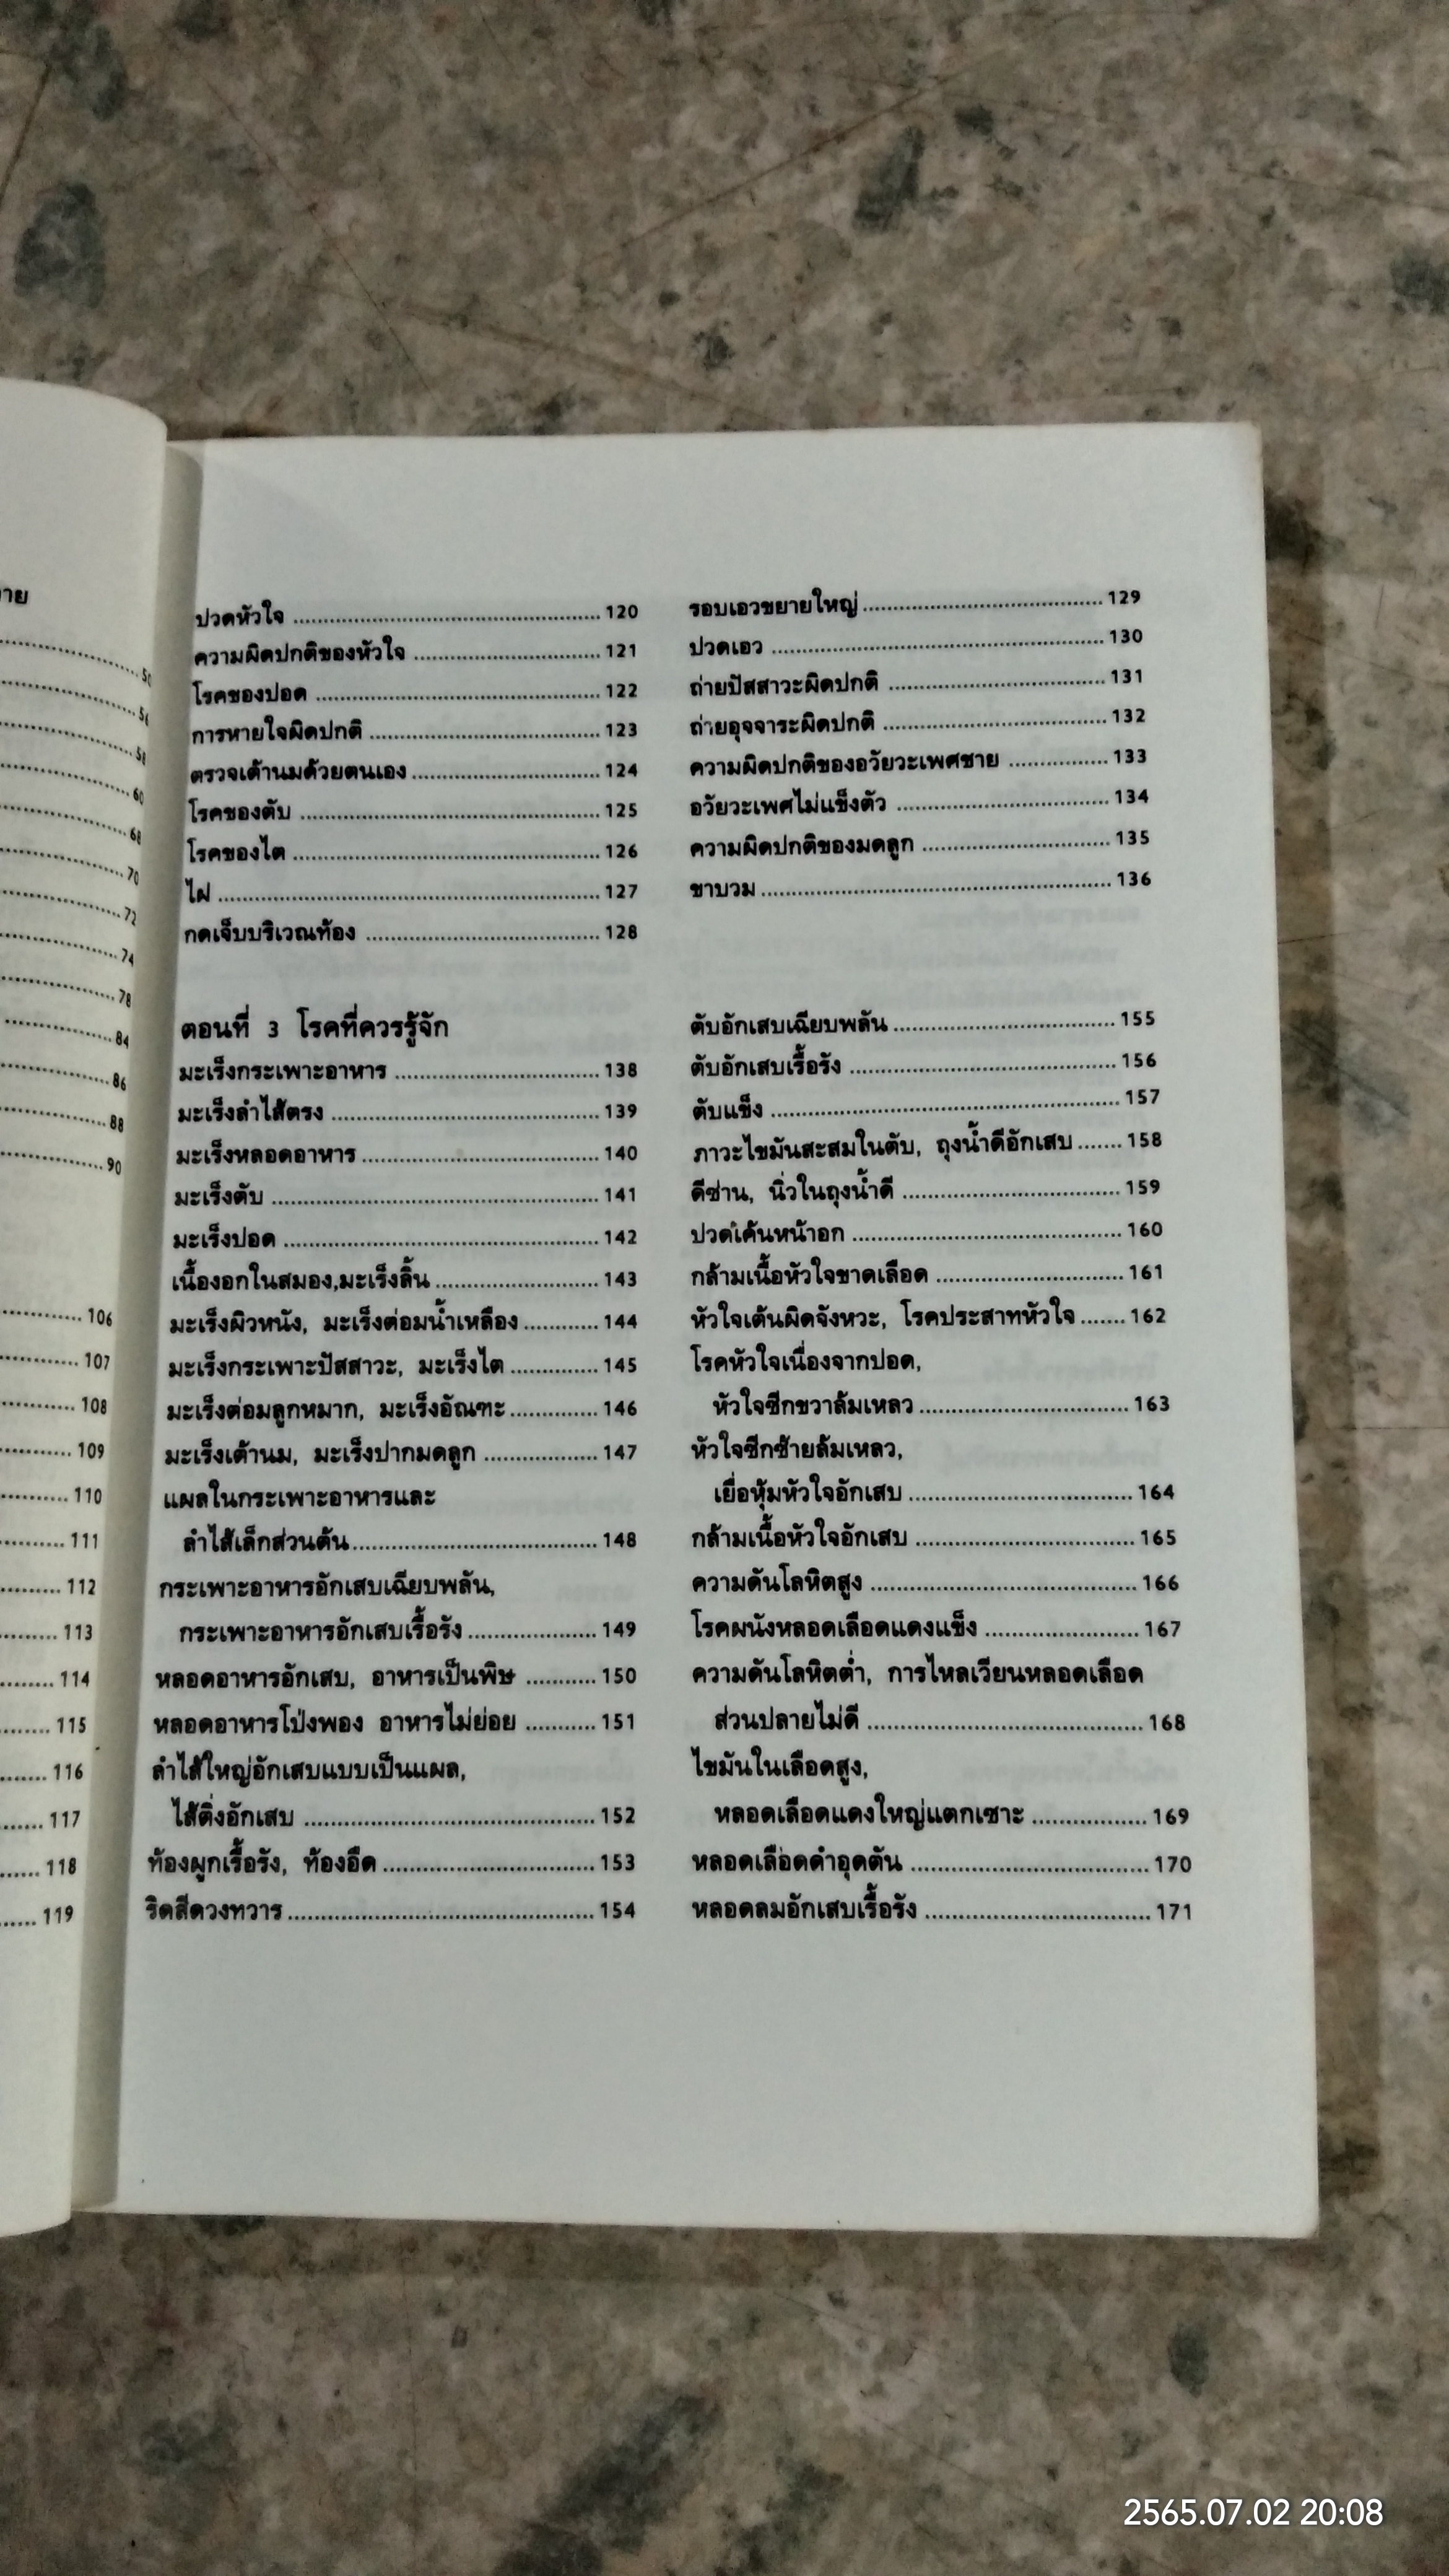 50
56
58
60
68
70
72
74
78
84
86
88
90
106
107
108
109
110
111
112
113
114
115
116
117
118
119
ปวดหัวใจ ........ 120
ความผิดปกติของหัวใจ ........ 121
โรคของปอด ........ 122
การหายใจผิดปกติ ........ 123
ตรวจเต้านมด้วยตนเอง ........ 124
โรคของตับ ........ 125
โรคของไต ........ 126
ไฝ ........ 127
กดเจ็บบริเวณท้อง ........ 128
รอบเอวขยายใหญ่ ........ 129
ปวดเอว ........ 130
ถ่ายปัสสาวะผิดปกติ ........ 131
ถ่ายอุจจาระผิดปกติ ........ 132
ความผิดปกติของอวัยวะเพศชาย ........ 133
อวัยวะเพศไม่แข็งตัว ........ 134
ความผิดปกติของมดลูก ........ 135
ขาบวม ........ 136
ตอนที่ 3 โรคที่ควรรู้จัก
มะเร็งกระเพาะอาหาร ........ 138
มะเร็งลำไส้ตรง ........ 139
มะเร็งหลอดอาหาร ........ 140
มะเร็งตับ ........ 141
มะเร็งปอด ........ 142
เนื้องอกในสมอง,มะเร็งลิ้น ........ 143
มะเร็งผิวหนัง, มะเร็งต่อมน้ำเหลือง ........ 144
มะเร็งกระเพาะปัสสาวะ, มะเร็งไต ........ 145
มะเร็งต่อมลูกหมาก, มะเร็งอัณฑะ ........ 146
มะเร็งเต้านม, มะเร็งปากมดลูก ........ 147
แผลในกระเพาะอาหารและ
ลำไส้เล็กส่วนต้น ........ 148
กระเพาะอาหารอักเสบเฉียบพลัน,
กระเพาะอาหารอักเสบเรื้อรัง ........ 149
หลอดอาหารอักเสบ, อาหารเป็นพิษ ........ 150
หลอดอาหารโป่งพอง อาหารไม่ย่อย ........ 151
ลำไส้ใหญ่อักเสบแบบเป็นแผล,
ไส้ติ่งอักเสบ ........ 152
ท้องผูกเรื้อรัง, ท้องอืด ........ 153
ริดสีดวงทวาร ........ 154
ตับอักเสบเฉียบพลัน ........ 155
ตับอักเสบเรื้อรัง ........ 156
ตับแข็ง ........ 157
ภาวะไขมันสะสมในตับ, ถุงน้ำดีอักเสบ ....... 158
ดีซ่าน, นิ่วในถุงน้ำดี ........ 159
ปวดเค้นหน้าอก ........ 160
กล้ามเนื้อหัวใจขาดเลือด ........ 161
หัวใจเต้นผิดจังหวะ, โรคประสาทหัวใจ ....... 162
โรคหัวใจเนื่องจากปอด,
หัวใจซีกขวาล้มเหลว ........ 163
หัวใจซีกซ้ายล้มเหลว,
เยื่อหุ้มหัวใจอักเสบ ........ 164
กล้ามเนื้อหัวใจอักเสบ ........ 165
ความดันโลหิตสูง ........ 166
โรคผนังหลอดเลือดแดงแข็ง ........ 167
ความดันโลหิตต่ำ, การไหลเวียนหลอดเลือด
ส่วนปลายไม่ดี ........ 168
ไขมันในเลือดสูง,
หลอดเลือดแดงใหญ่แตกเซาะ ........ 169
หลอดเลือดดำอุดตัน ........ 170
หลอดลมอักเสบเรื้อรัง ........ 171
2565.07.02 20:08